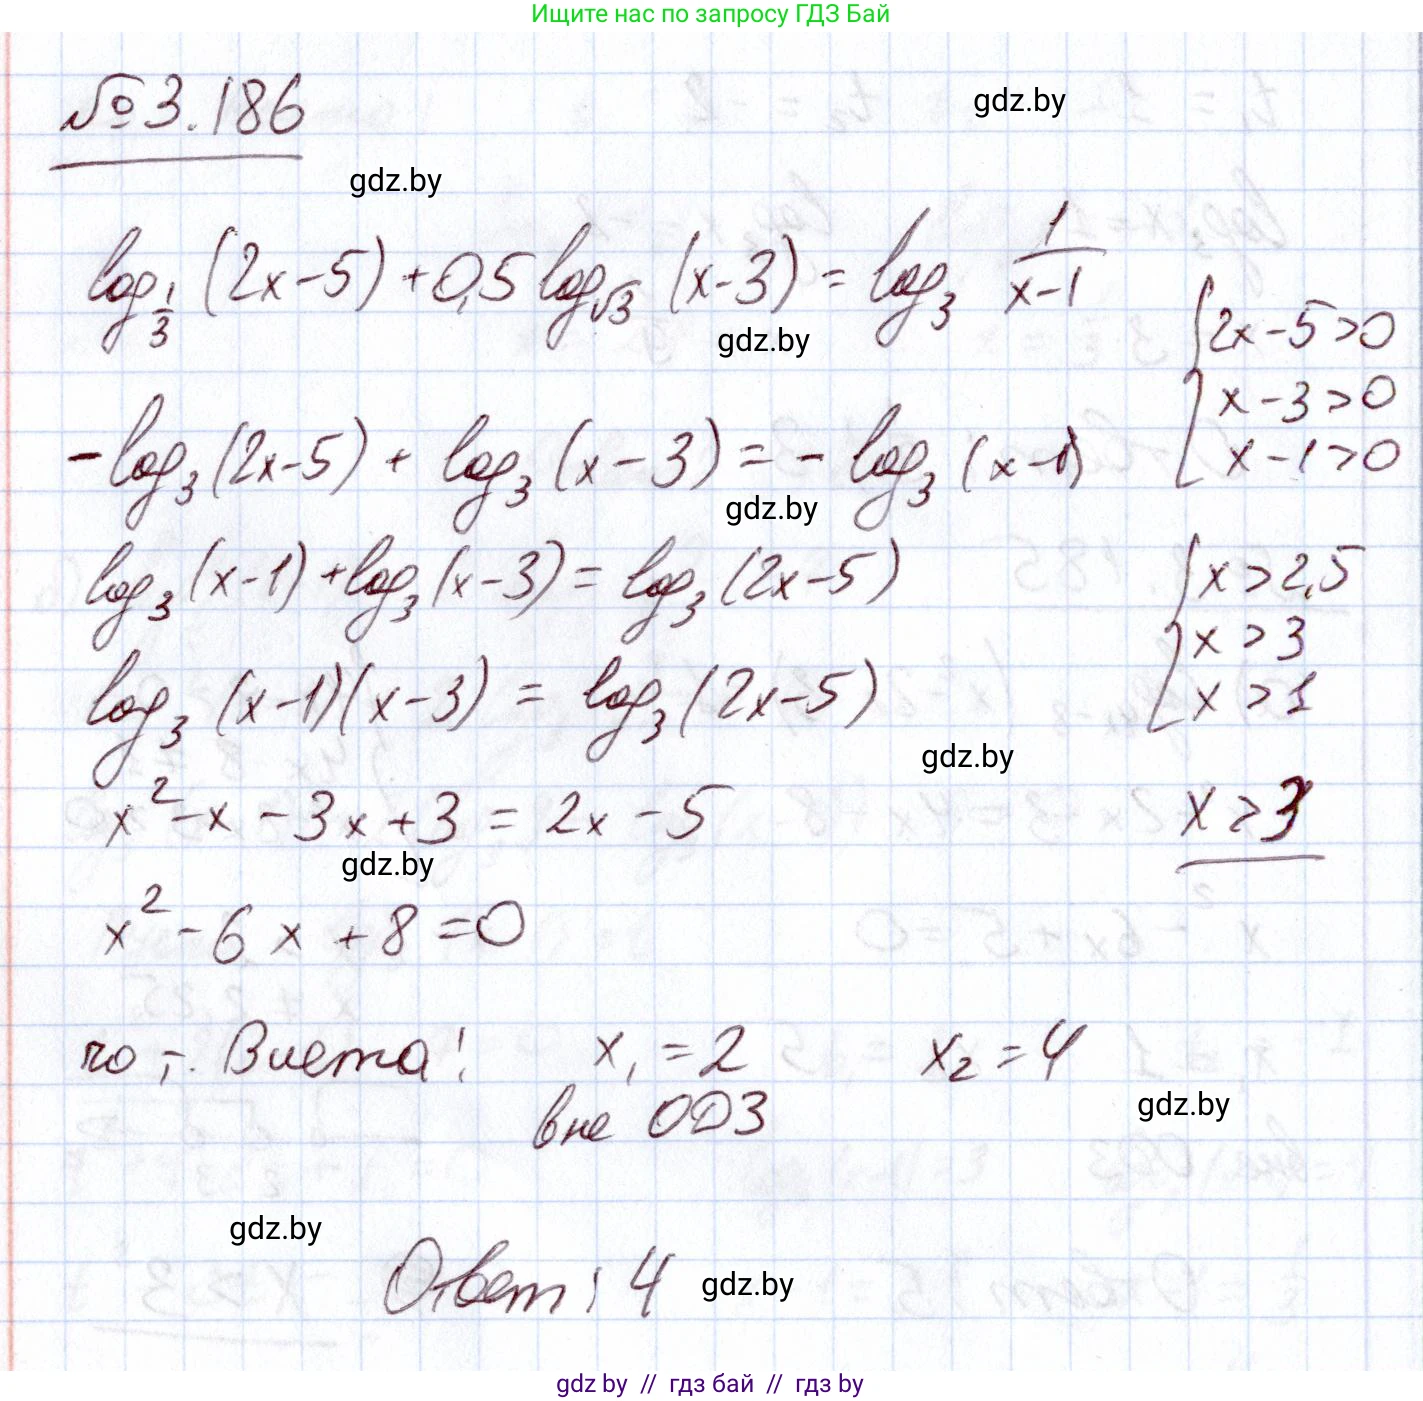 Ищите нас по запросу ГДЗ Бай
№3.186
gdz.by
gdz.by
log_{1/3} (2x-5) + 0,5 log_{√3} (x-3) = log_3 1/(x-1)
gdz.by
{2x-5>0
x-3>0
x-1>0
-log_3 (2x-5) + log_3 (x-3) = -log_3 (x-1)
gdz.by
log_3 (x-1) + log_3 (x-3) = log_3 (2x-5)
{x>2,5
x>3
x>1
log_3 (x-1)(x-3) = log_3 (2x-5)
gdz.by
x>3
x²-x-3x+3=2x-5
gdz.by
x²-6x+8=0
по т. Виета: x₁=2 x₂=4
вне ОДЗ
gdz.by
gdz.by
Ответ: 4
gdz.by
gdz by // гдз бай // гдз by